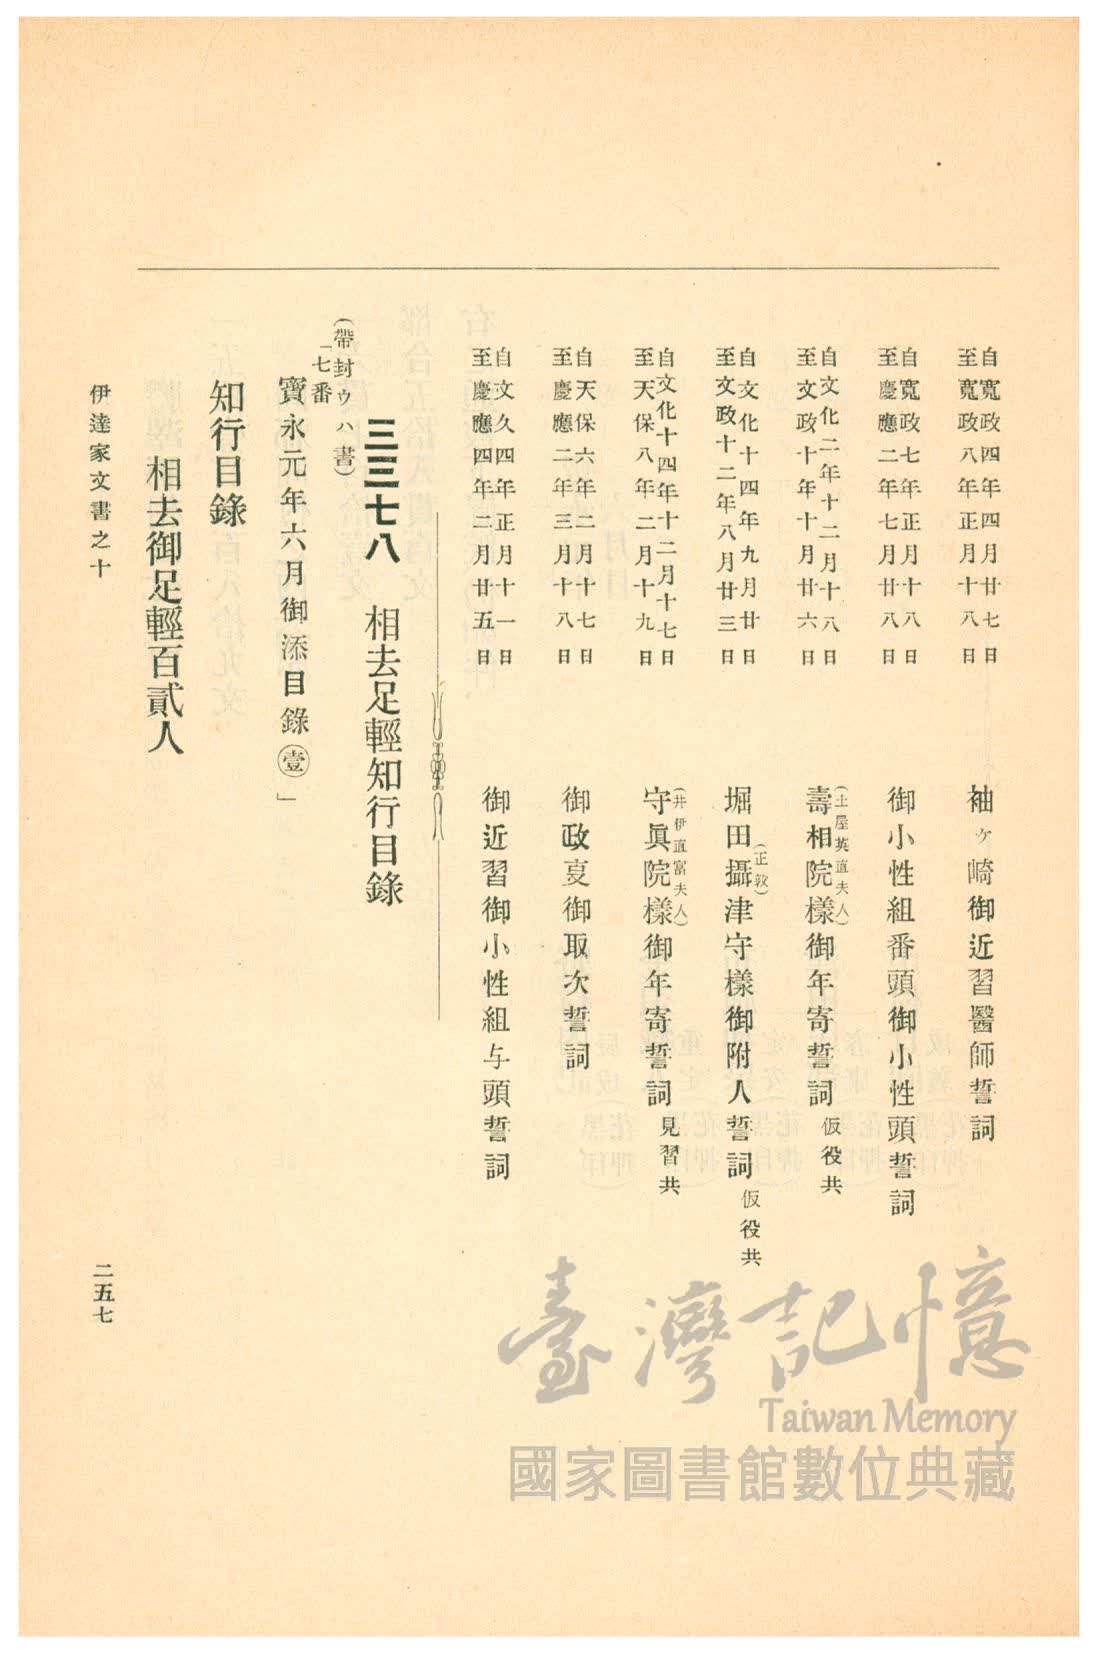 自寬政四年四月廿七日
至寬政八年正月十八日
袖ヶ崎御近習醫師誓詞
自寬政七年正月十八日
至慶應二年七月廿八日
御小性組番頭御小性頭誓詞
自文化二年十二月十八日
至文政十年十月廿六日
(土屋英直夫人)
壽相院樣御年寄誓詞 仮役共
自文化十四年九月廿日
至文政十二年八月廿三日
(正敦)
堀田攝津守樣御附人誓詞 仮役共
自文化十四年十二月十七日
至天保八年二月十九日
(井伊直富夫人)
守眞院樣御年寄誓詞 見習共
自天保六年二月十七日
至慶應二年三月十八日
御政㕝御取次誓詞
自文久四年正月十一日
至慶應四年二月廿五日
御近習御小性組与頭誓詞
三三七八 相去足輕知行目錄
(帶封ウハ書)
「七番
寳永元年六月御添目錄㊀壹」
知行目錄
相去御足輕百貳人
伊達家文書之十
二五七
臺灣記憶
Taiwan Memory
國家圖書館數位典藏